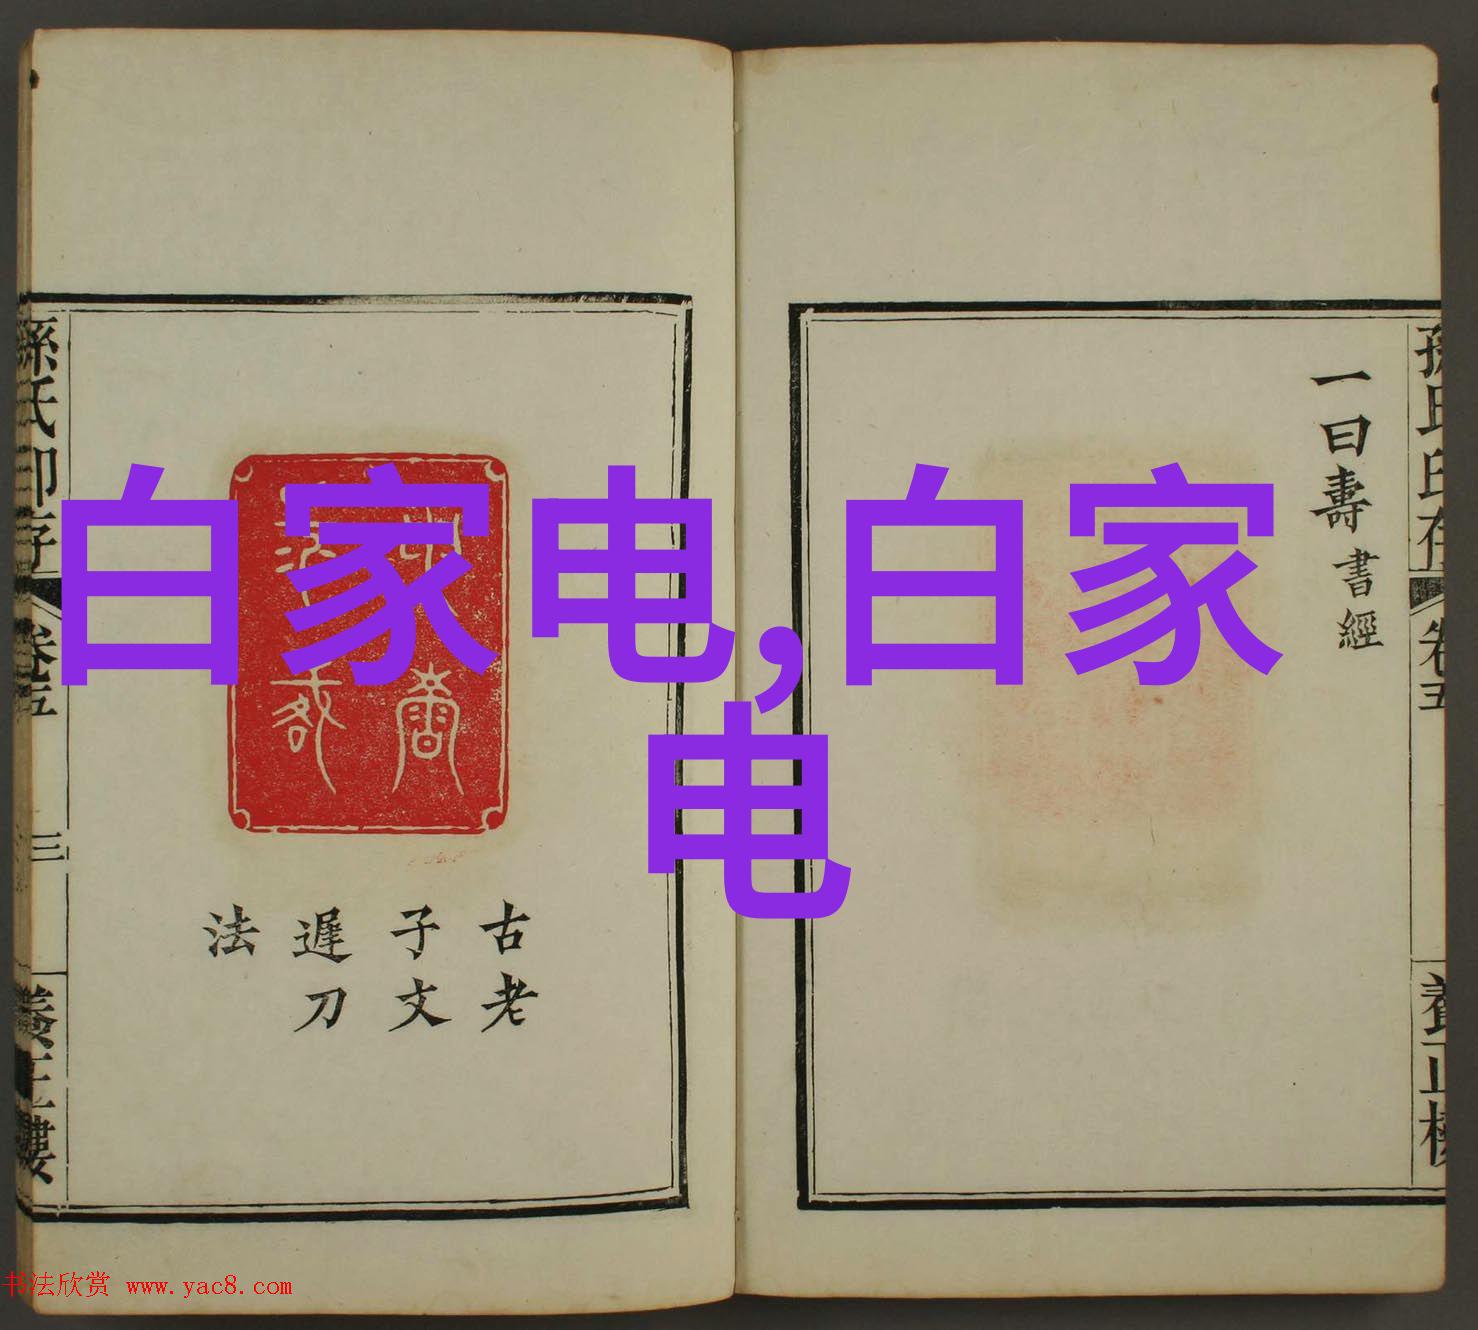 白家电,白家
电
一曰壽書經
孫氏印存
卷五
養正樓
古老
子文
遲刀
法
孫氏印存
卷五
三
養正樓
书法欣赏 www.yac8.com